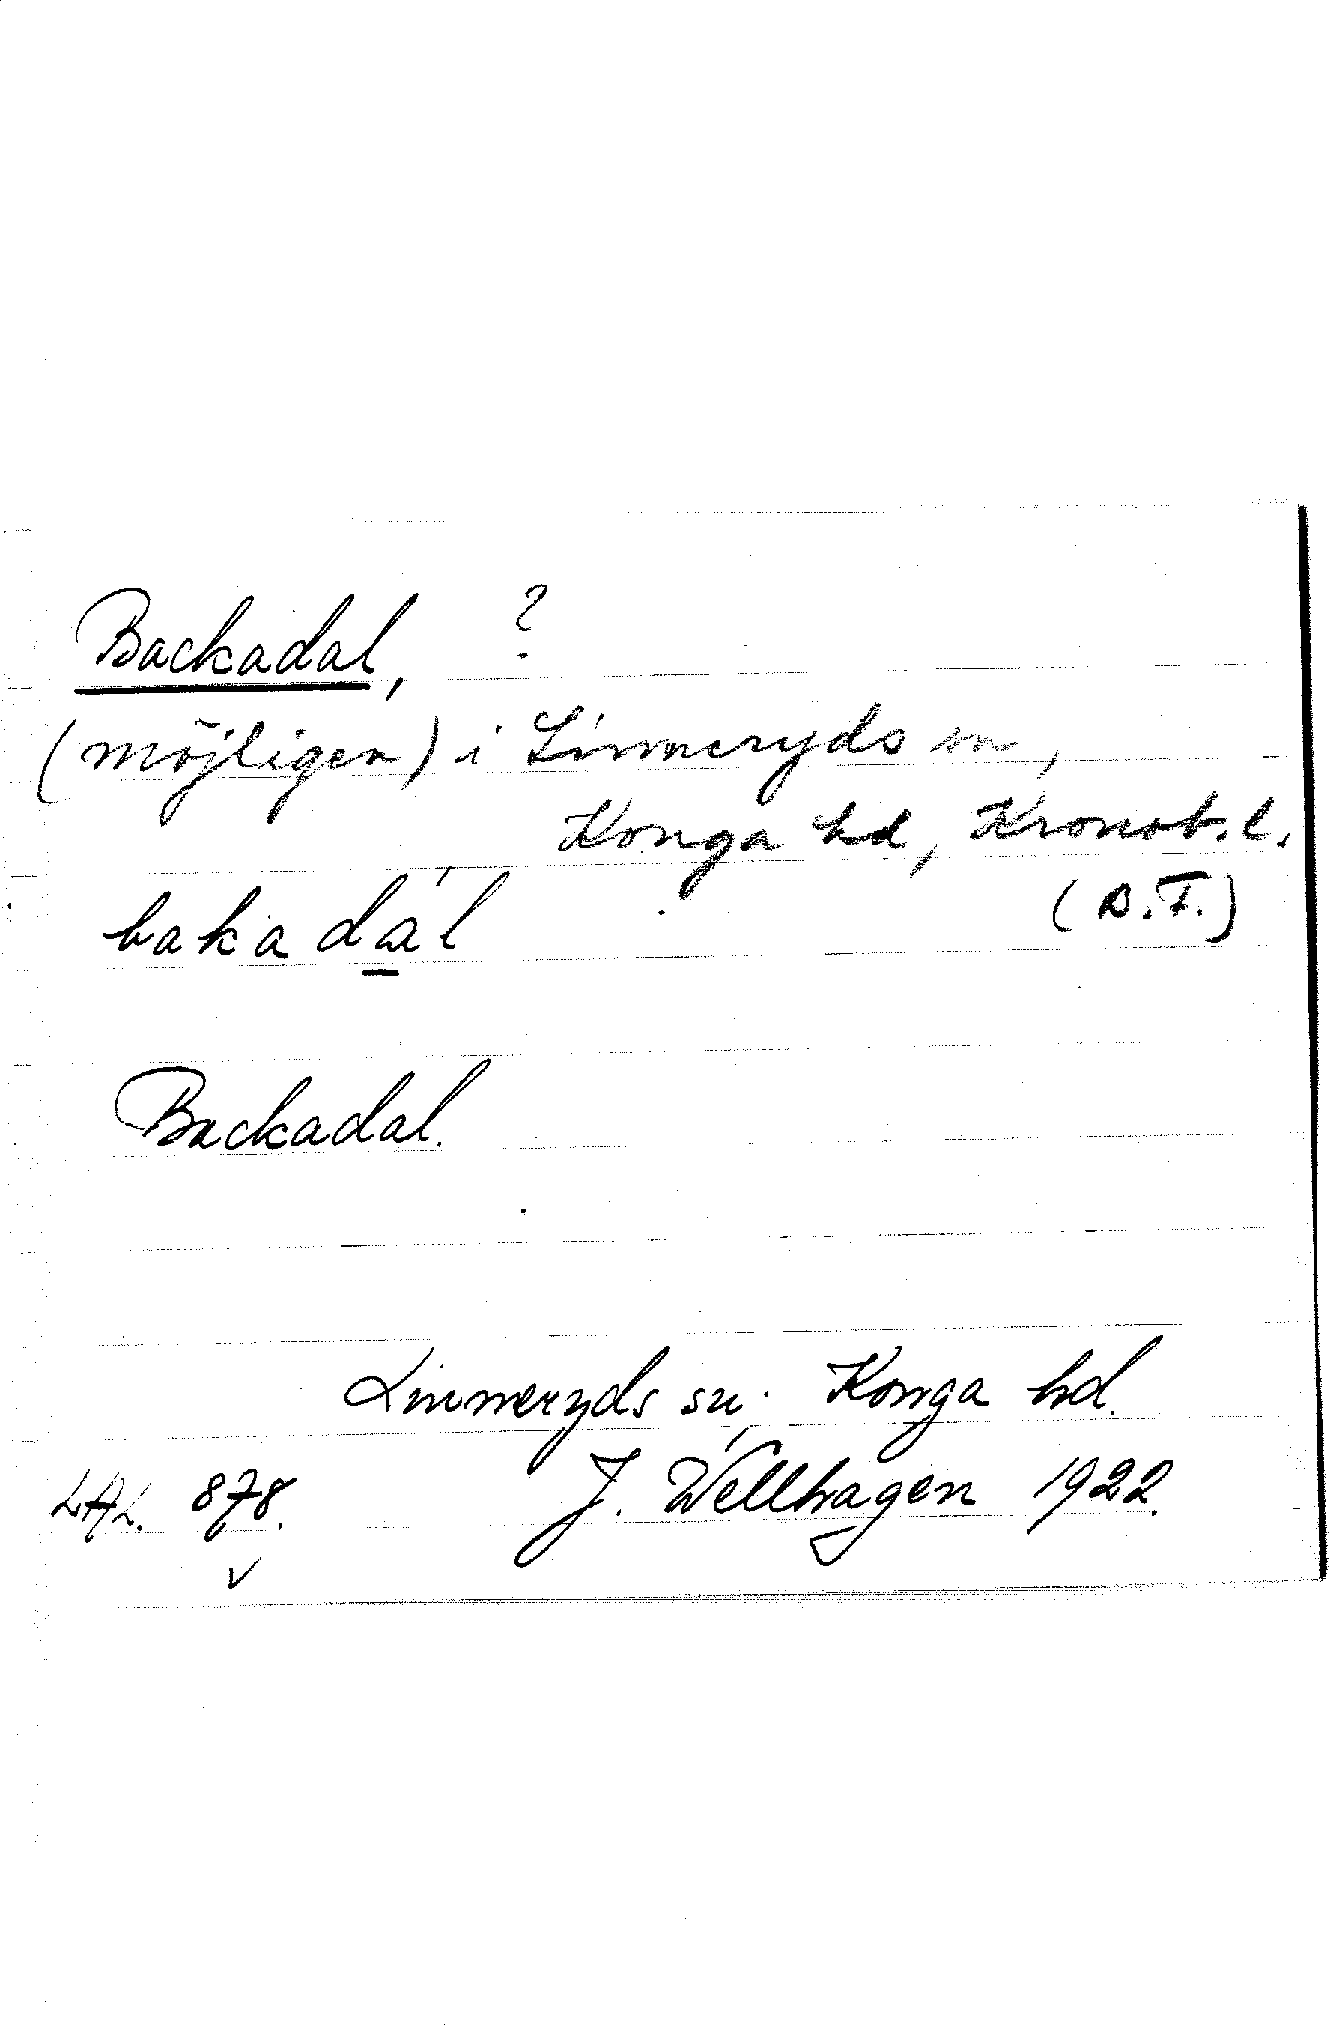 Backadal, ?
(möjligen) i Linneryds sn,
Konga hd, Kronob. l.
(B.F.)
bakadál
Backadal.
Linneryds sn. Konga hd.
LAL. 878. J. Wellhagen 1922.